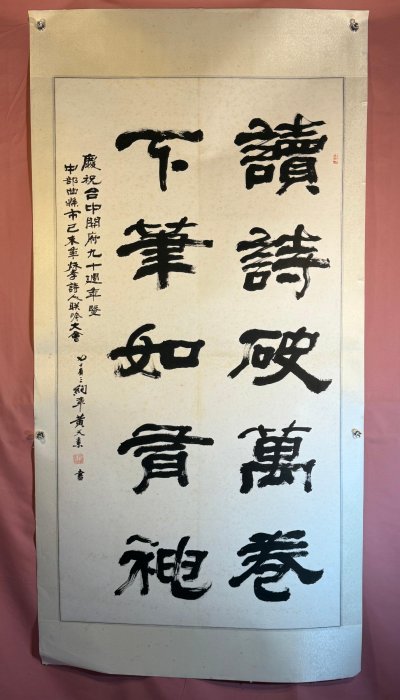 讀詩破萬卷
下筆如有神
慶祝台中開府九十週年暨
中部四縣市己未年秋季詩人聯吟大會
黃天素
書